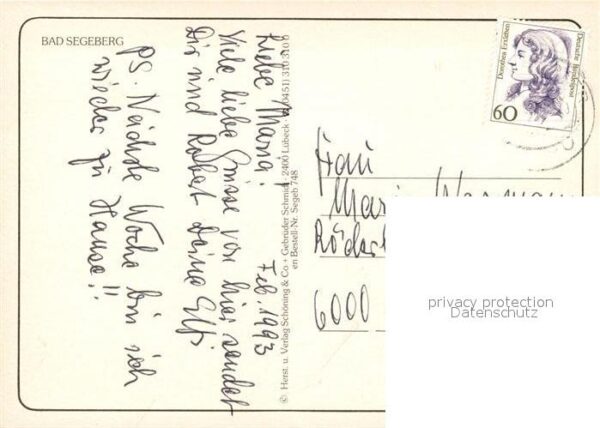 BAD SEGEBERG
Feb. 1993
Liebe Maria!
Viele liebe Grüsse von hier sendet
Dir und Robert Deine Elfi
PS. Nächste Woche bin ich
wieder zu Hause!!
© Herst. u. Verlag Schöning & Co + Gebrüder Schmidt · 2400 Lübeck · (0451) 310310
en Bestell-Nr. Segeb 748
Dorothea Erxleben
Deutsche Bundespost
60
Frau
6000
privacy protection
Datenschutz